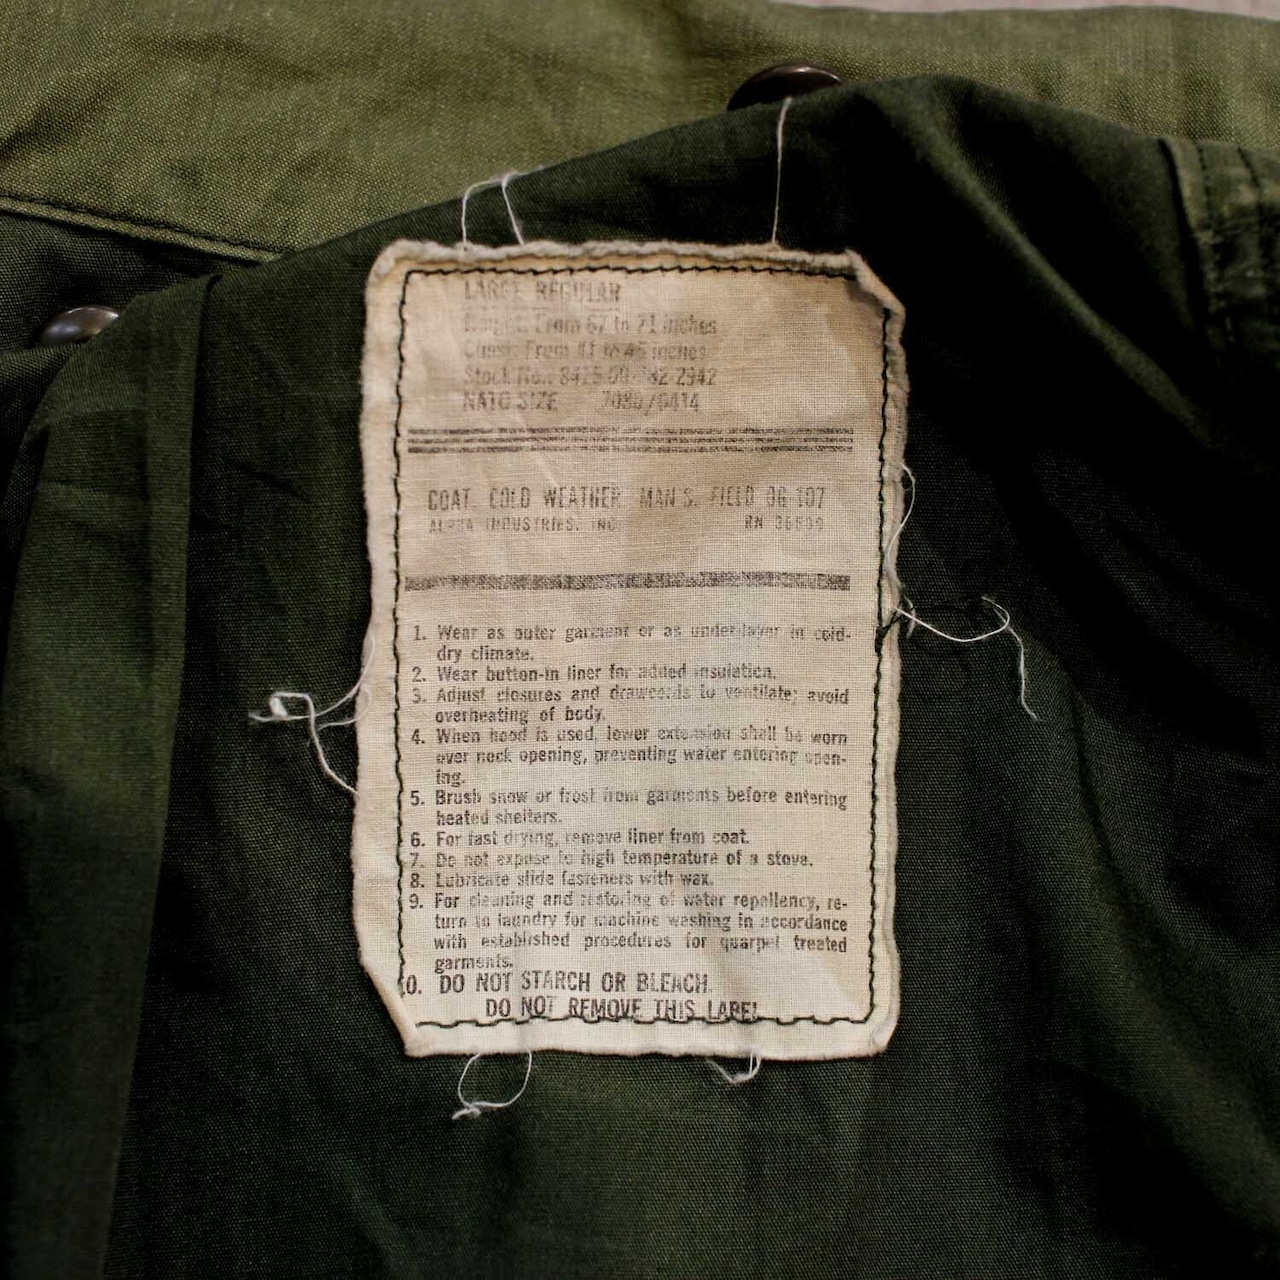 LARGE REGULAR
From 67 to 71 inches
Chest: From 41 to 45 inches
Stock No.: 2942
NATO SIZE
COAT, COLD WEATHER MAN'S, FIELD OG 107
ALPHA INDUSTRIES, INC. RN
1. Wear as outer garment or as underlayer in cold-
dry climate.
2. Wear button-in liner for added insulation.
3. Adjust closures and drawcords to ventilate; avoid
overheating of body.
4. When hood is used, lower extension shall be worn
over neck opening, preventing water entering open-
ing.
5. Brush snow or frost from garments before entering
heated shelters.
6. For fast drying, remove liner from coat.
7. Do not expose to high temperature of a stove.
8. Lubricate slide fasteners with wax.
9. For cleaning and restoring of water repellency, re-
turn to laundry for machine washing in accordance
with established procedures for quarpel treated
garments.
0. DO NOT STARCH OR BLEACH.
DO NOT REMOVE THIS LABEL